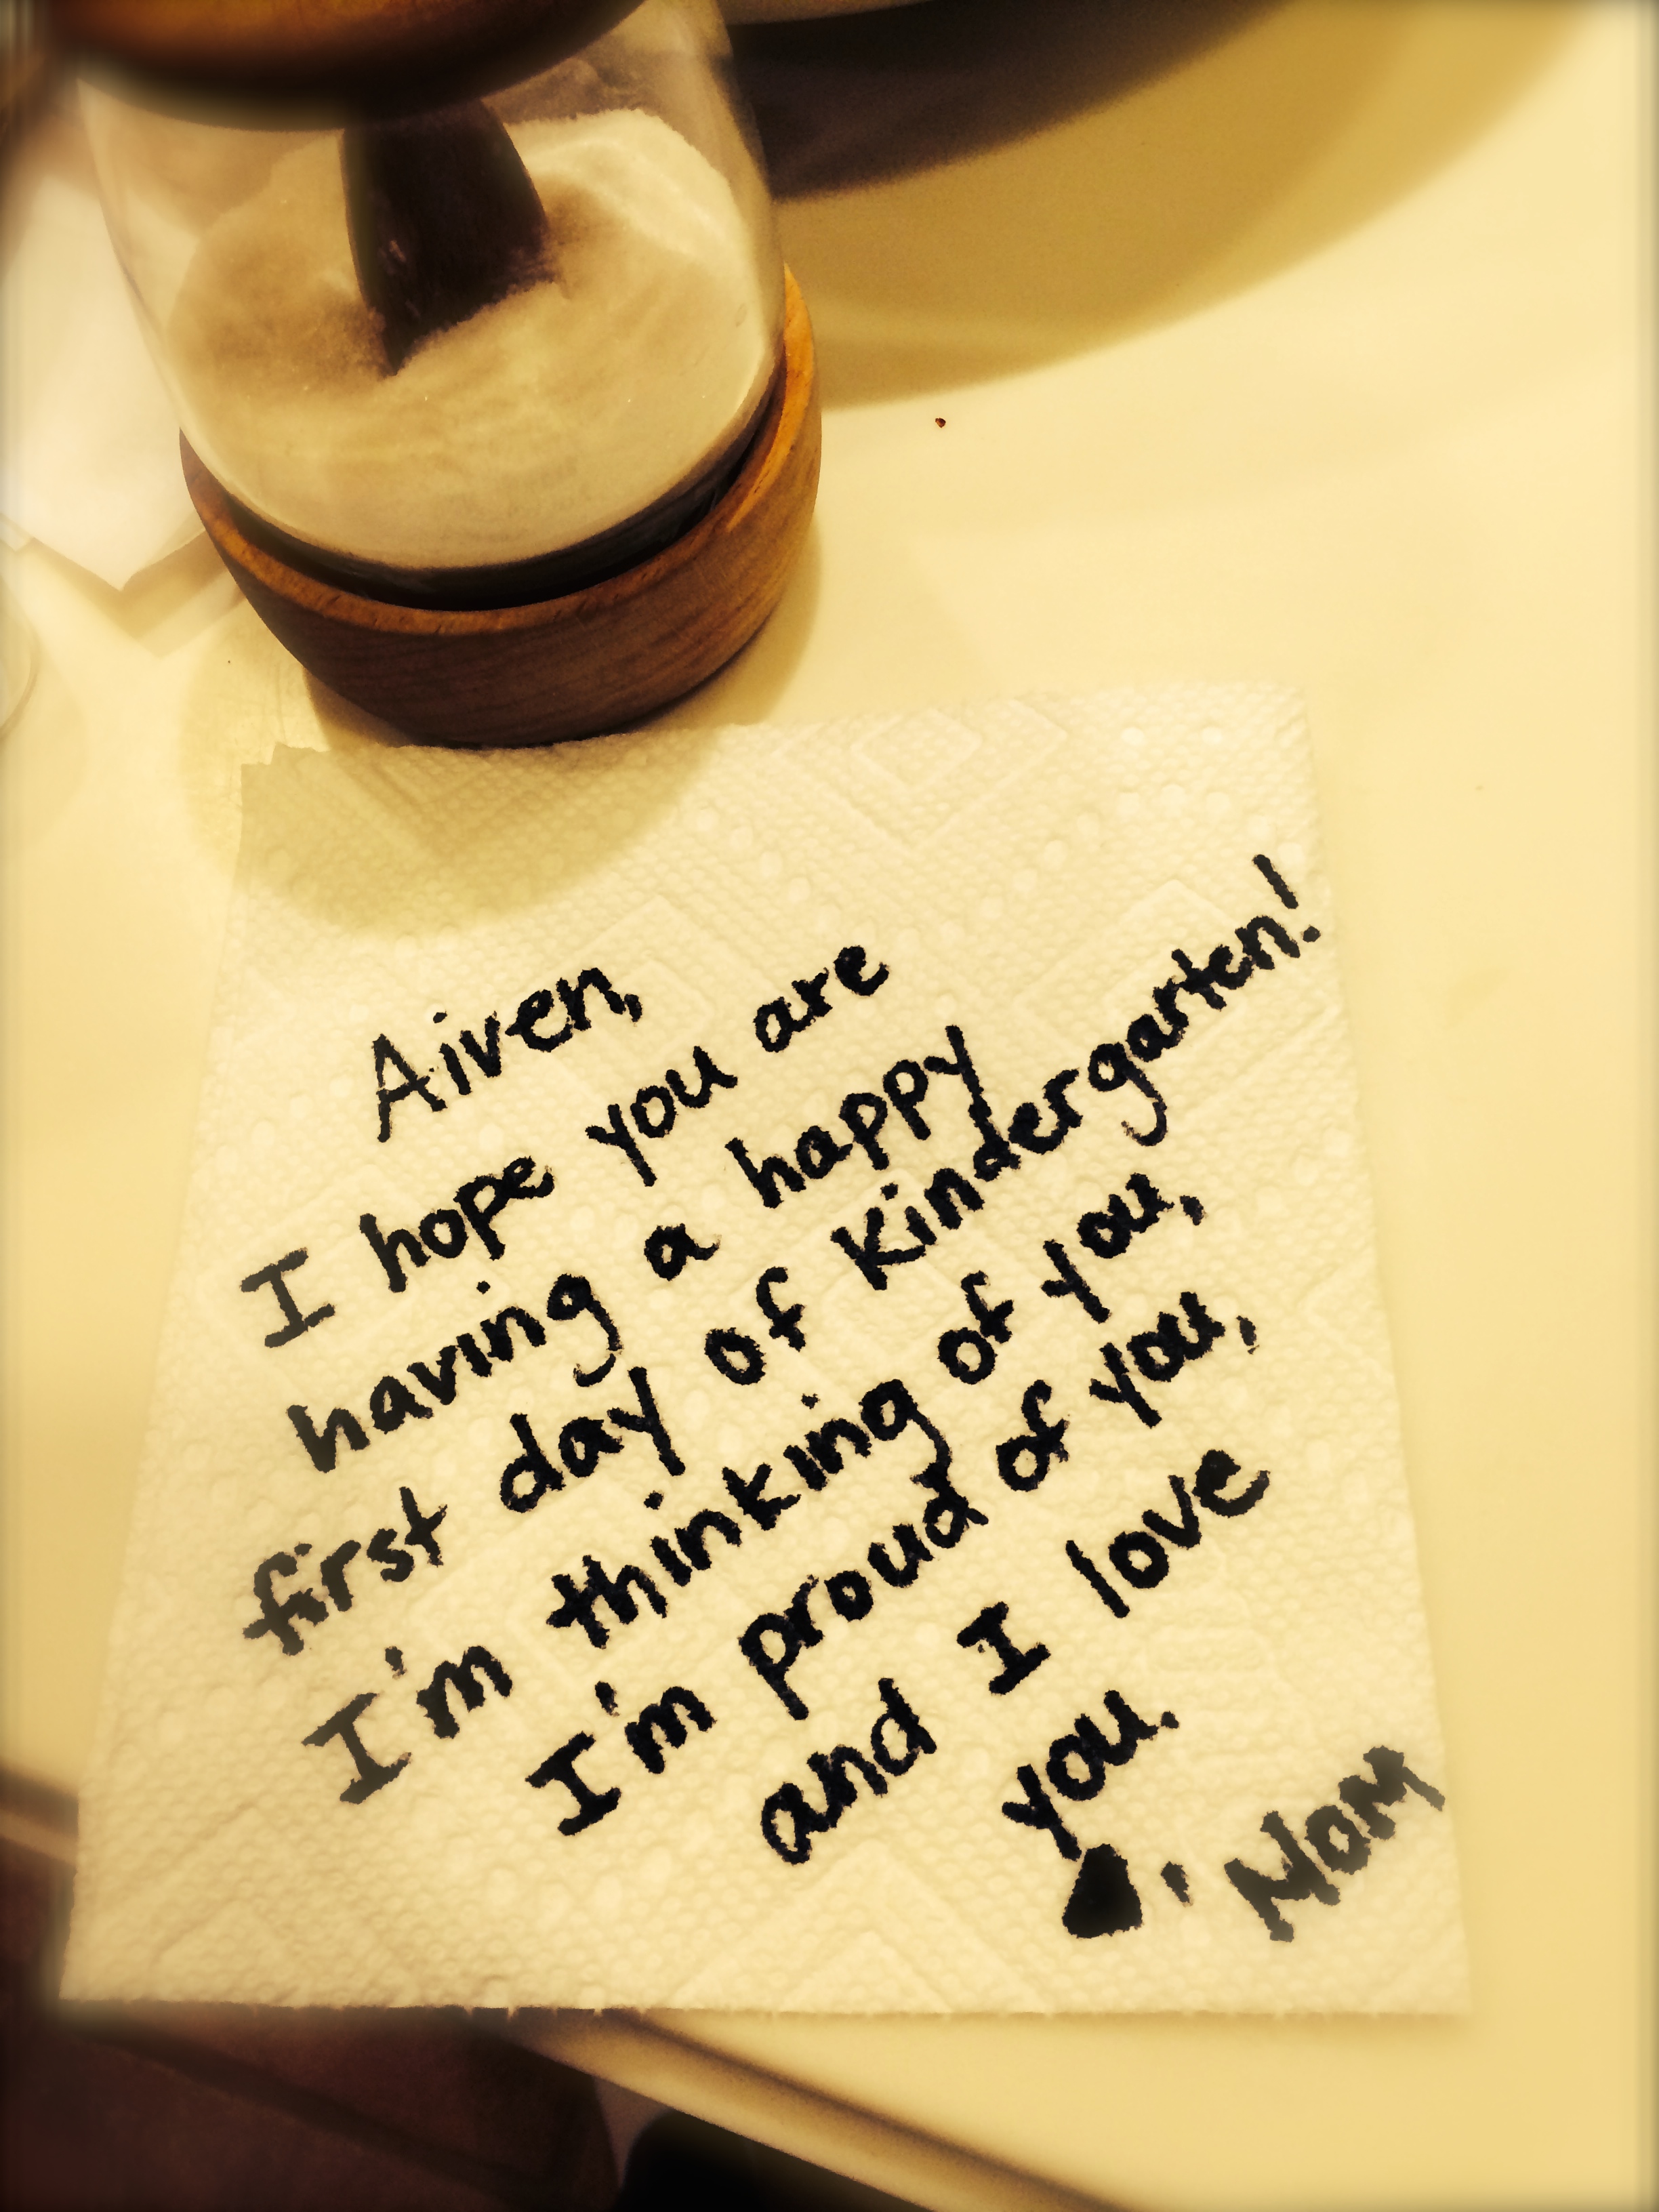 Aiven,
I hope you are
having a happy
first day of Kindergarten!
I'm thinking of you,
I'm proud of you,
and I love
you.
Mom